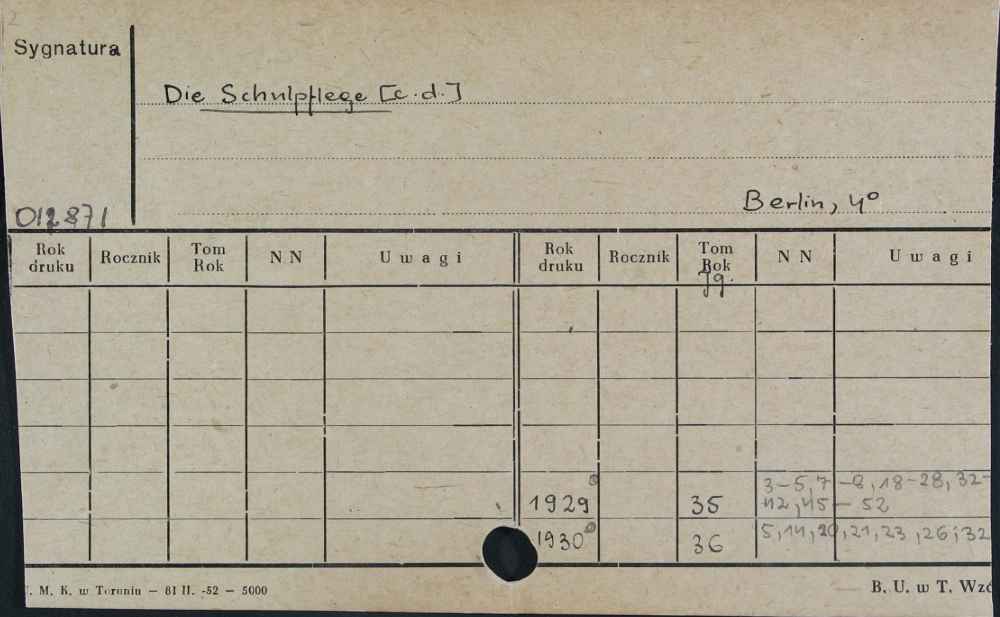 2
Sygnatura
Die Schulpflege [c.d.]
Berlin, 4°
012871
Rok druku Rocznik Tom Rok N N U w a g i Rok druku Rocznik Tom Rok Jg. N N U w a g i
1929 35 3-5,7-8,18-28,32-
42,45-52
1930 36 5,14,20,21,23,26;32
. M. K. w Toruniu – 81 II. -52 – 5000
B. U. w T. Wzó